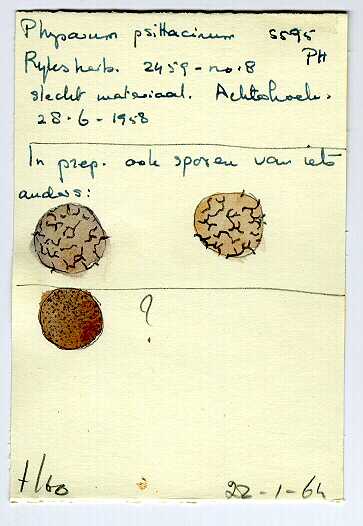 Physarum psittacinum 5595
Rijksherb. 2459 - no. 8 PH
slecht materiaal. Achterhoek.
28.6-1958
In prep. ook sporen van iets
anders:
?
22-1-64